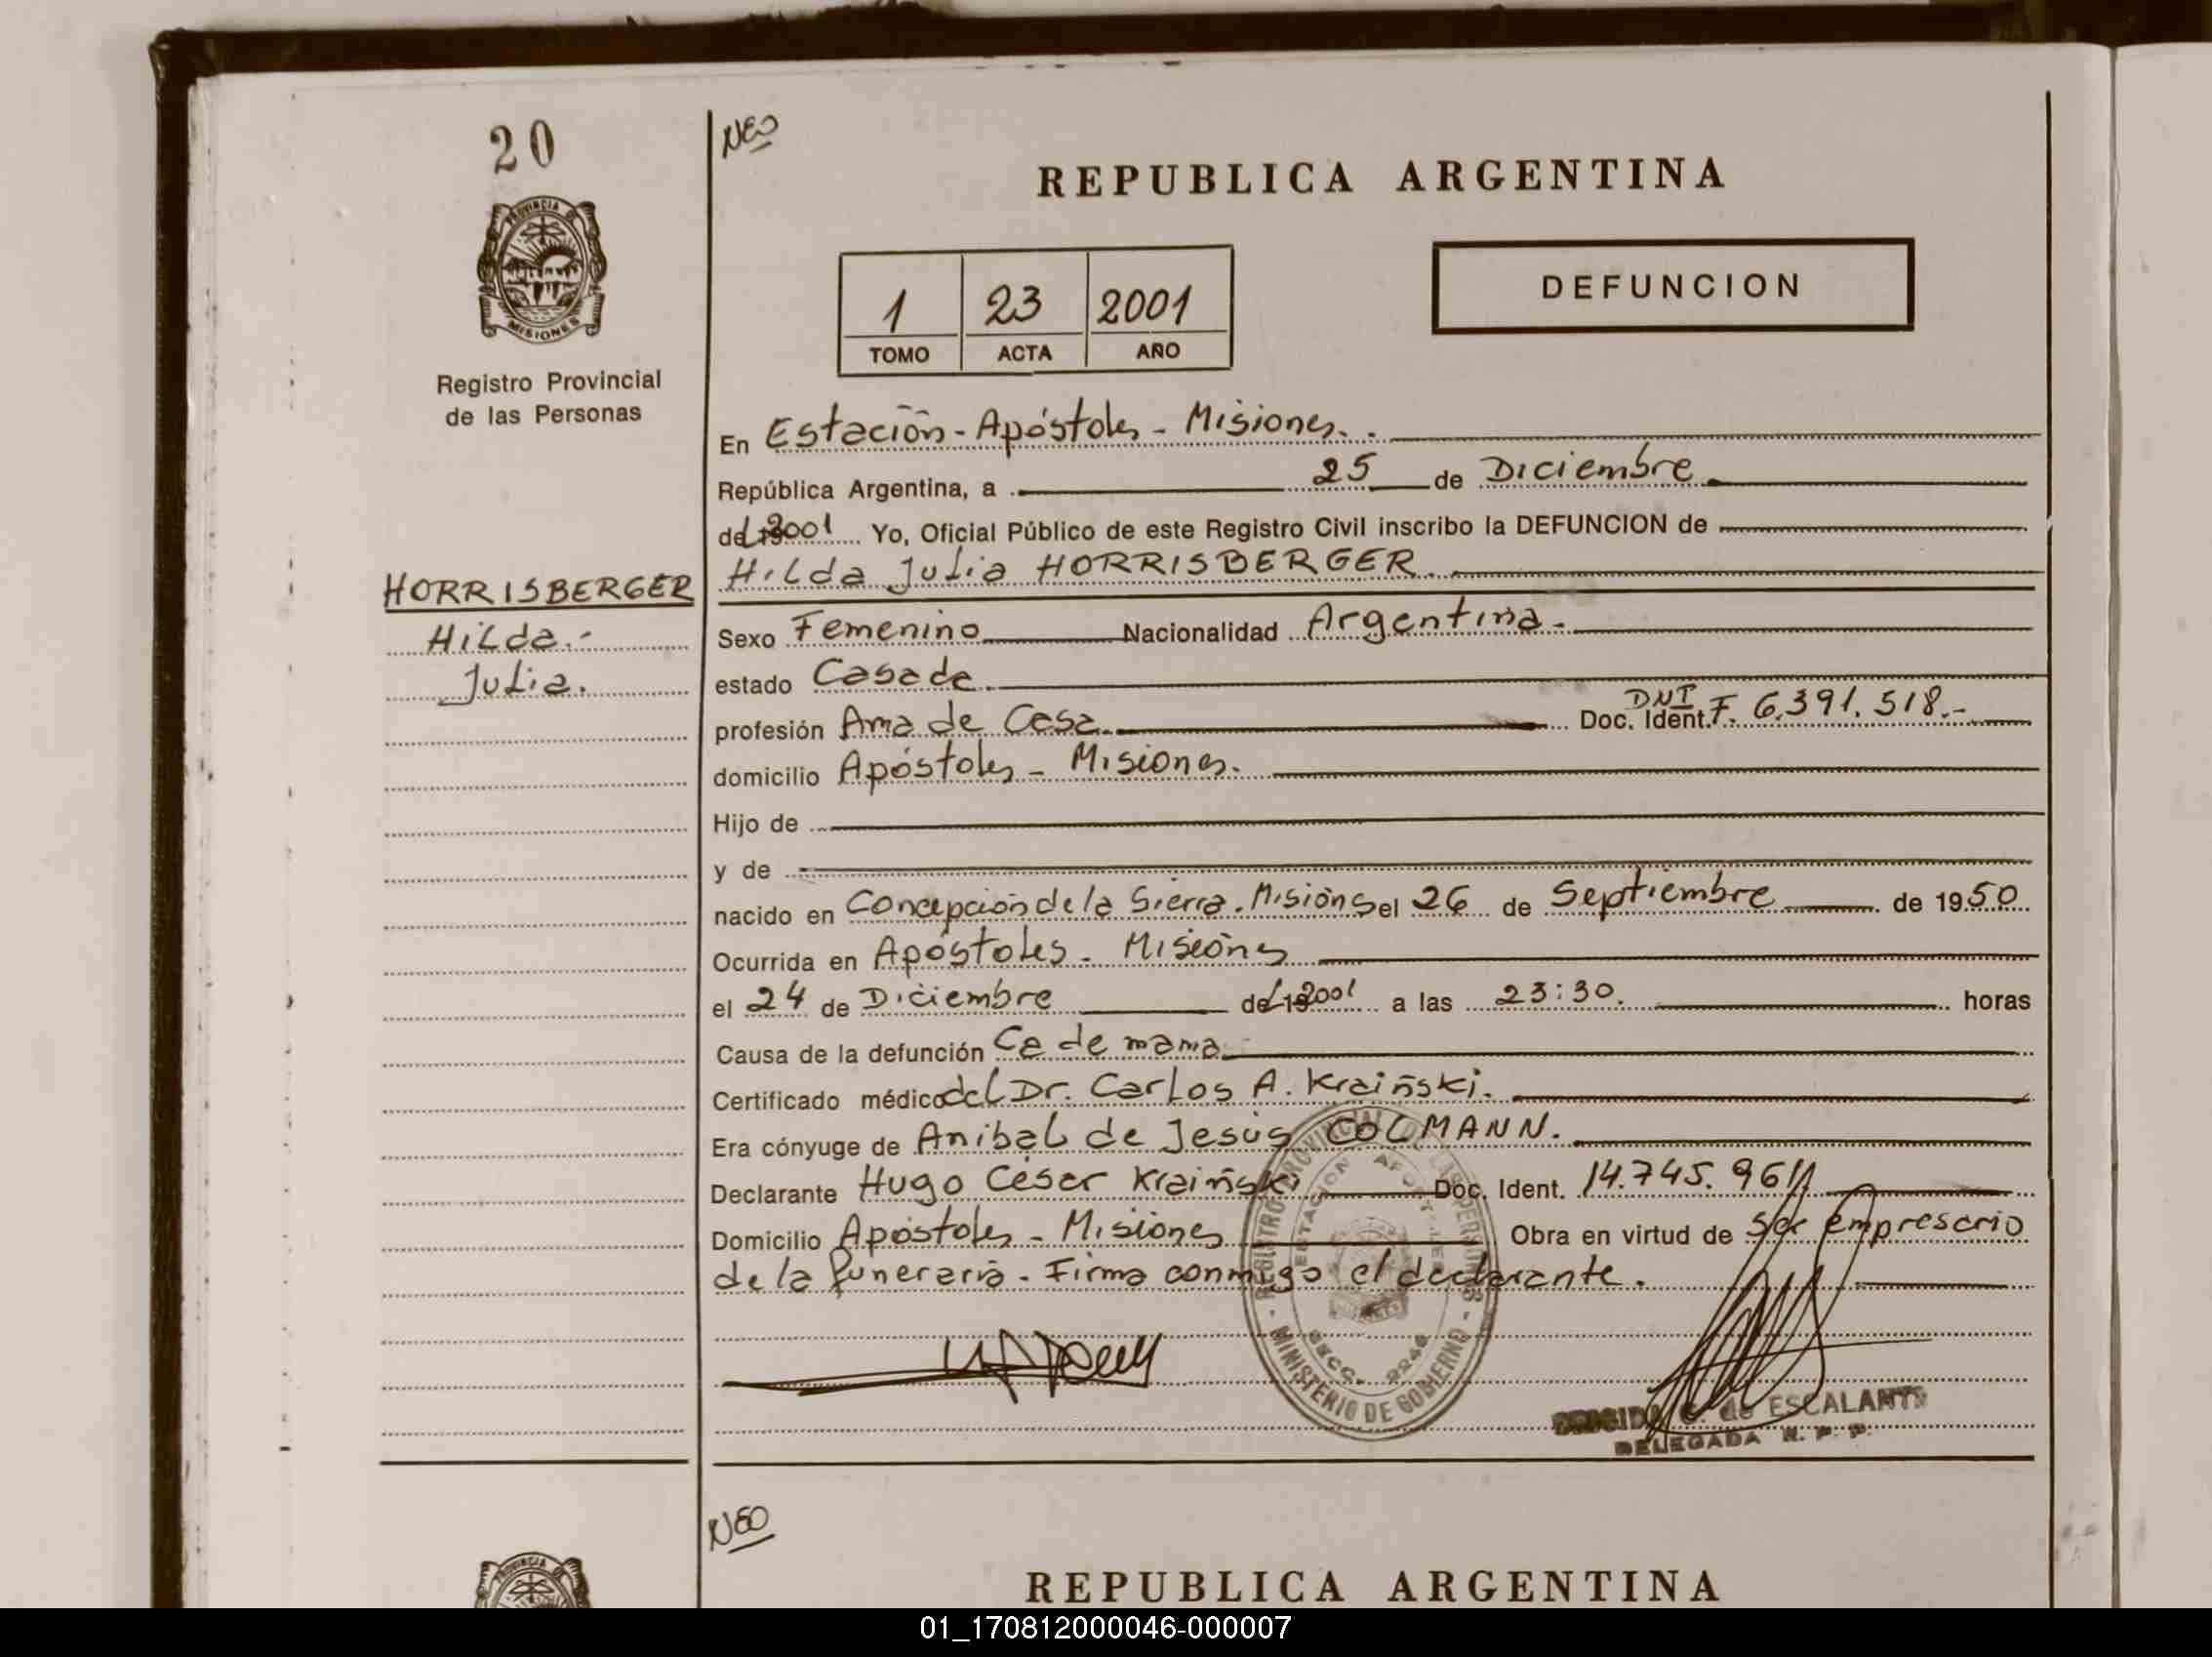 20
NEO
REPUBLICA ARGENTINA
PROVINCIA DE
MISIONES
Registro Provincial
de las Personas
1 23 2001
TOMO ACTA AÑO
DEFUNCION
En Estación - Apóstoles - Misiones.
República Argentina, a 25 de Diciembre
del 2001 Yo, Oficial Público de este Registro Civil inscribo la DEFUNCION de
Hilda Julia HORRISBERGER.
HORRISBERGER
Hilda.-
Julia.
Sexo Femenino Nacionalidad Argentina.
estado Casada.
profesión Ama de Casa. Doc. Ident. DNI F. 6.391.518.-
domicilio Apóstoles - Misiones.
Hijo de
y de
nacido en Concepción de la Sierra. Misiones el 26 de Septiembre de 1950
Ocurrida en Apóstoles - Misiones
el 24 de Diciembre del 2001 a las 23:30. horas
Causa de la defunción Ca de mama
Certificado médico del Dr. Carlos A. Kraiñski.
Era cónyuge de Anibal de Jesús COLMANN.
Declarante Hugo César Kraiñski Doc. Ident. 14.745.961
Domicilio Apóstoles - Misiones Obra en virtud de Ser empresario
de la funeraria. Firma conmigo el declarante.
REGISTRO PROVINCIAL DE LAS PERSONAS
ESTACION APOSTOLES
SECC. 2246
- MINISTERIO DE GOBIERNO -
de ESCALANTE
DELEGADA R. P. P.
NEO
PROVINCIA DE
REPUBLICA ARGENTINA
01_170812000046-000007